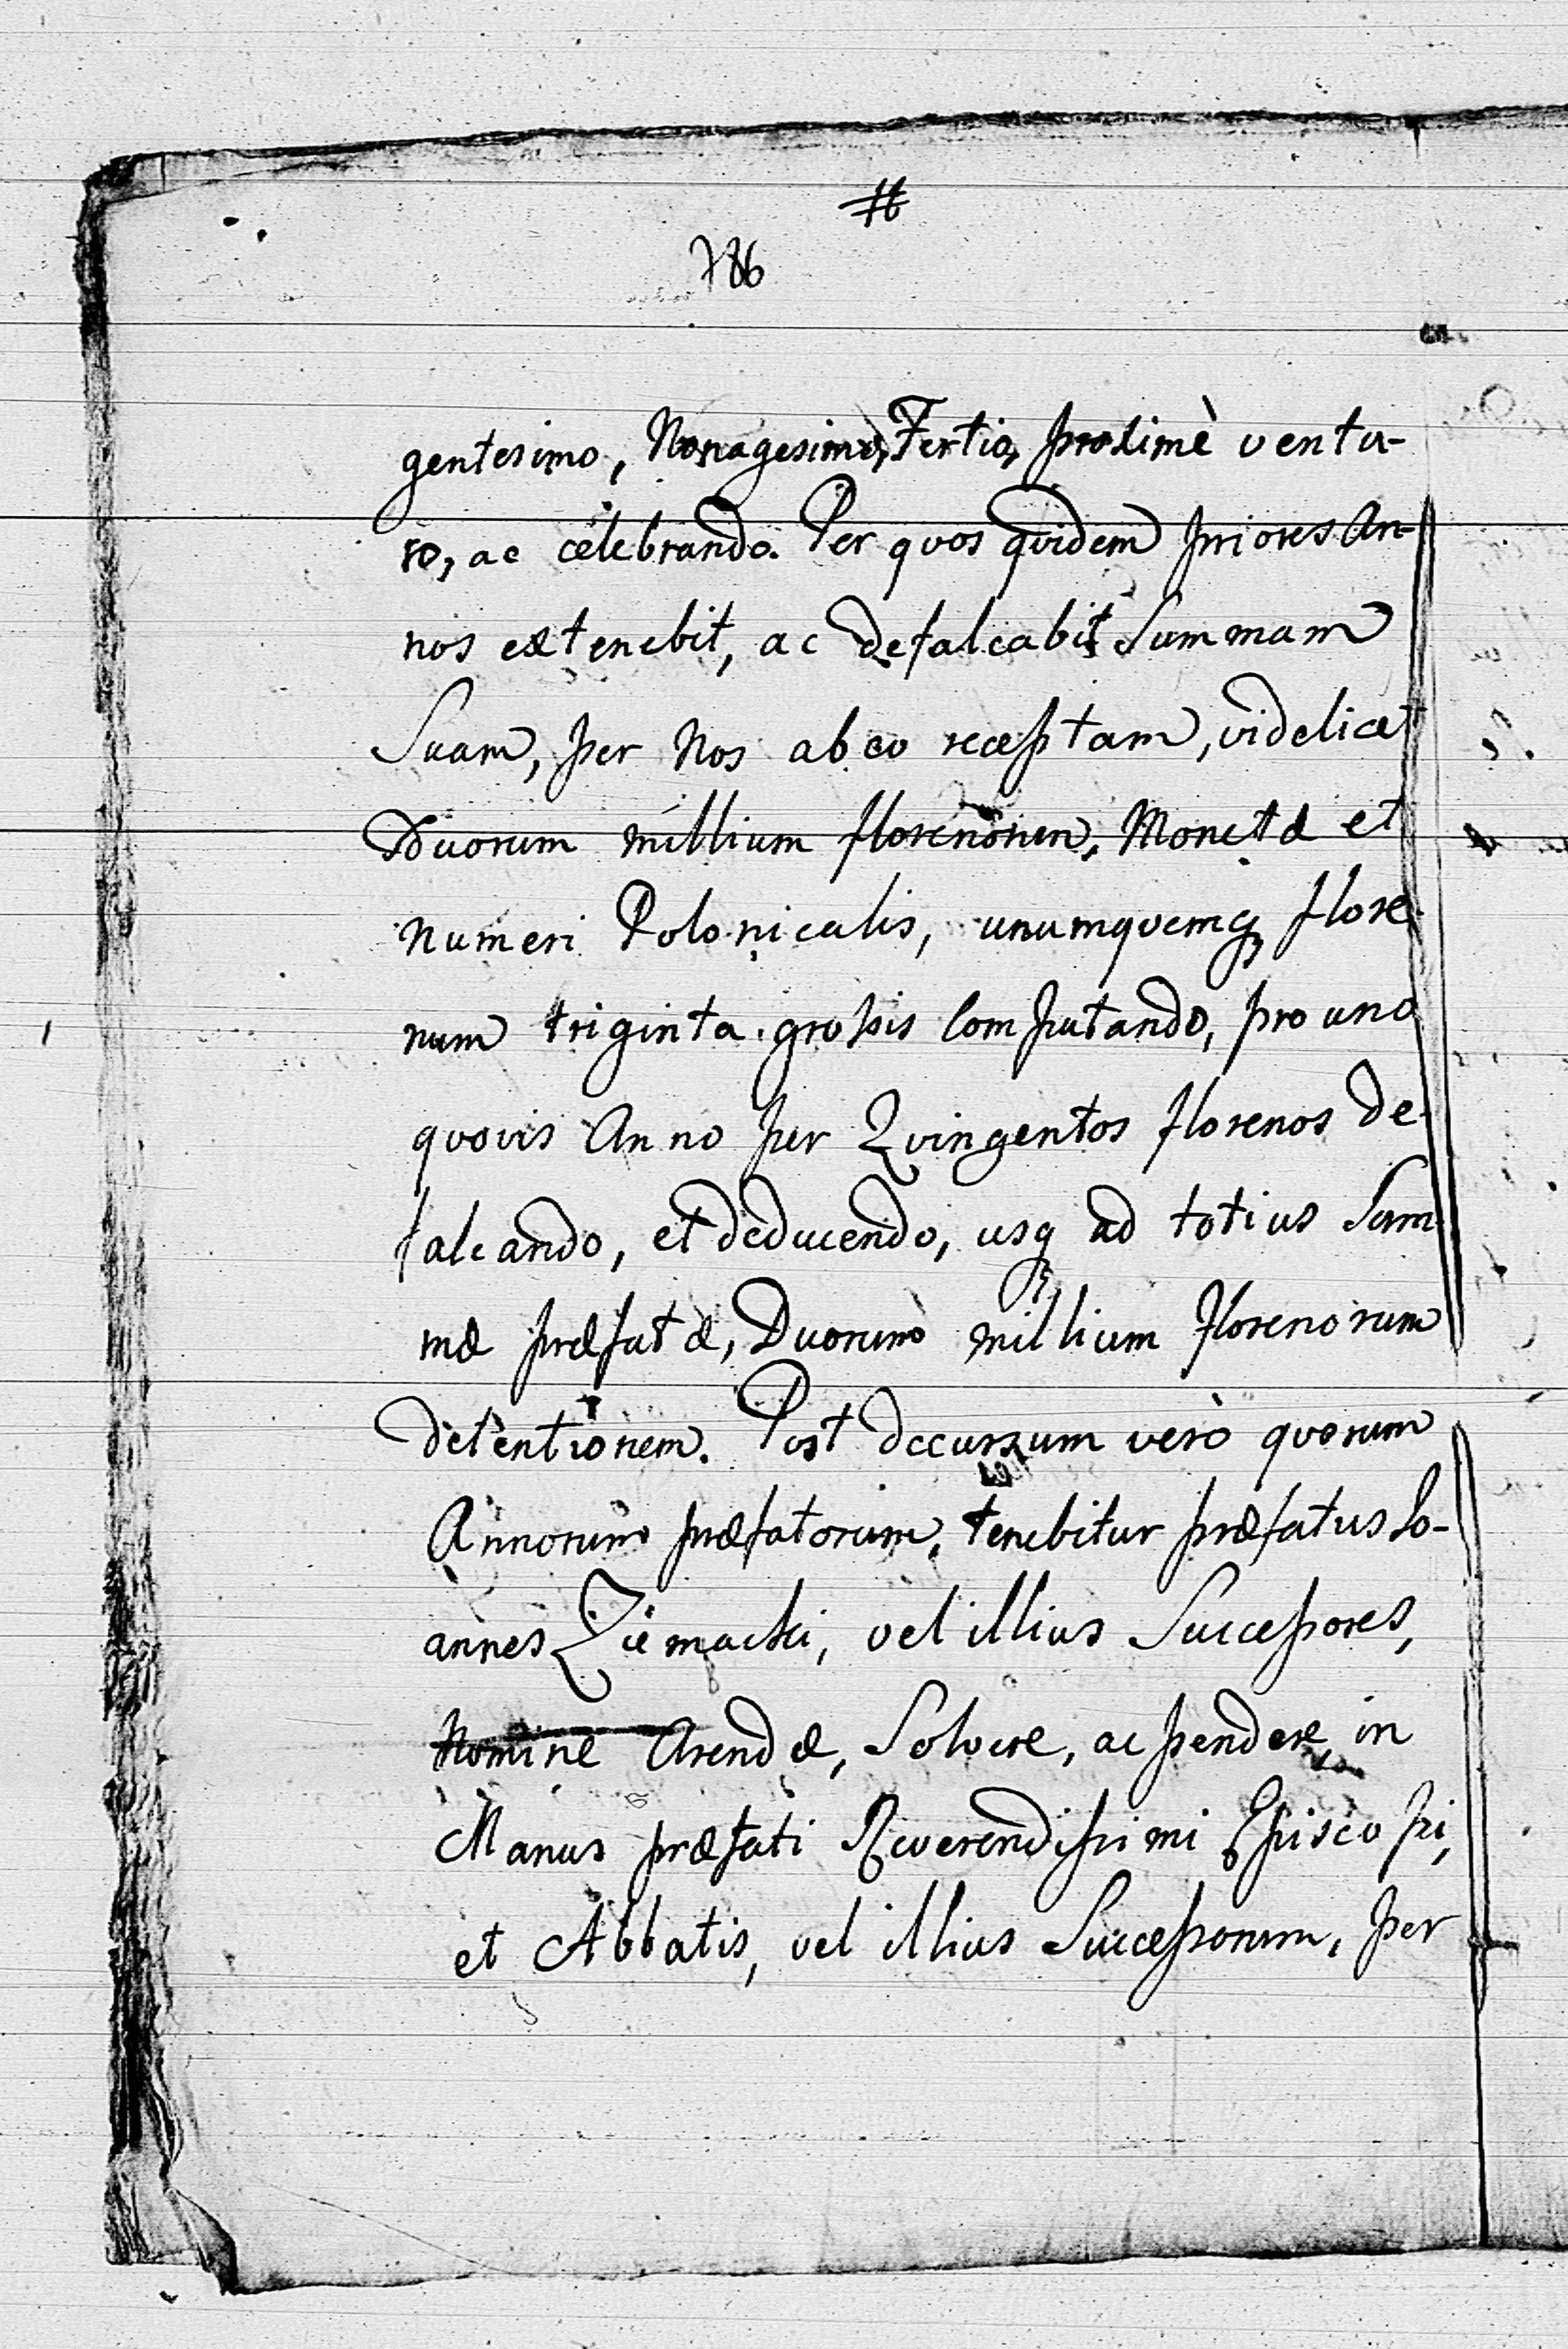 786
gentesimo, Nonagesimo, Tertio, proximè ventu-
ro, ac celebrando. Per quos quidem priores An-
nos extenebit, ac defalcabit Summam
Suam, per Nos ab eo receptam, videlicet
Duorum millium florenorum, Monetæ et
numeri Polonicalis, unumquemq flore
num triginta grossis computando, pro uno
quovis Anno per Quingentos florenos de-
falcando, et deducendo, usq ad totius Sum
mæ præfatæ, Duorum millium florenorum
detentionem. Post decursum verò quorum
Annorum præfatorum, tenebitur præfatus Jo-
annes Ziemacki, vel illius Successores,
Nomine Arendæ, Solvere, ac pendere, in
Manus præfati Reverendissimi Episcopi,
et Abbatis, vel illius Successorum, per